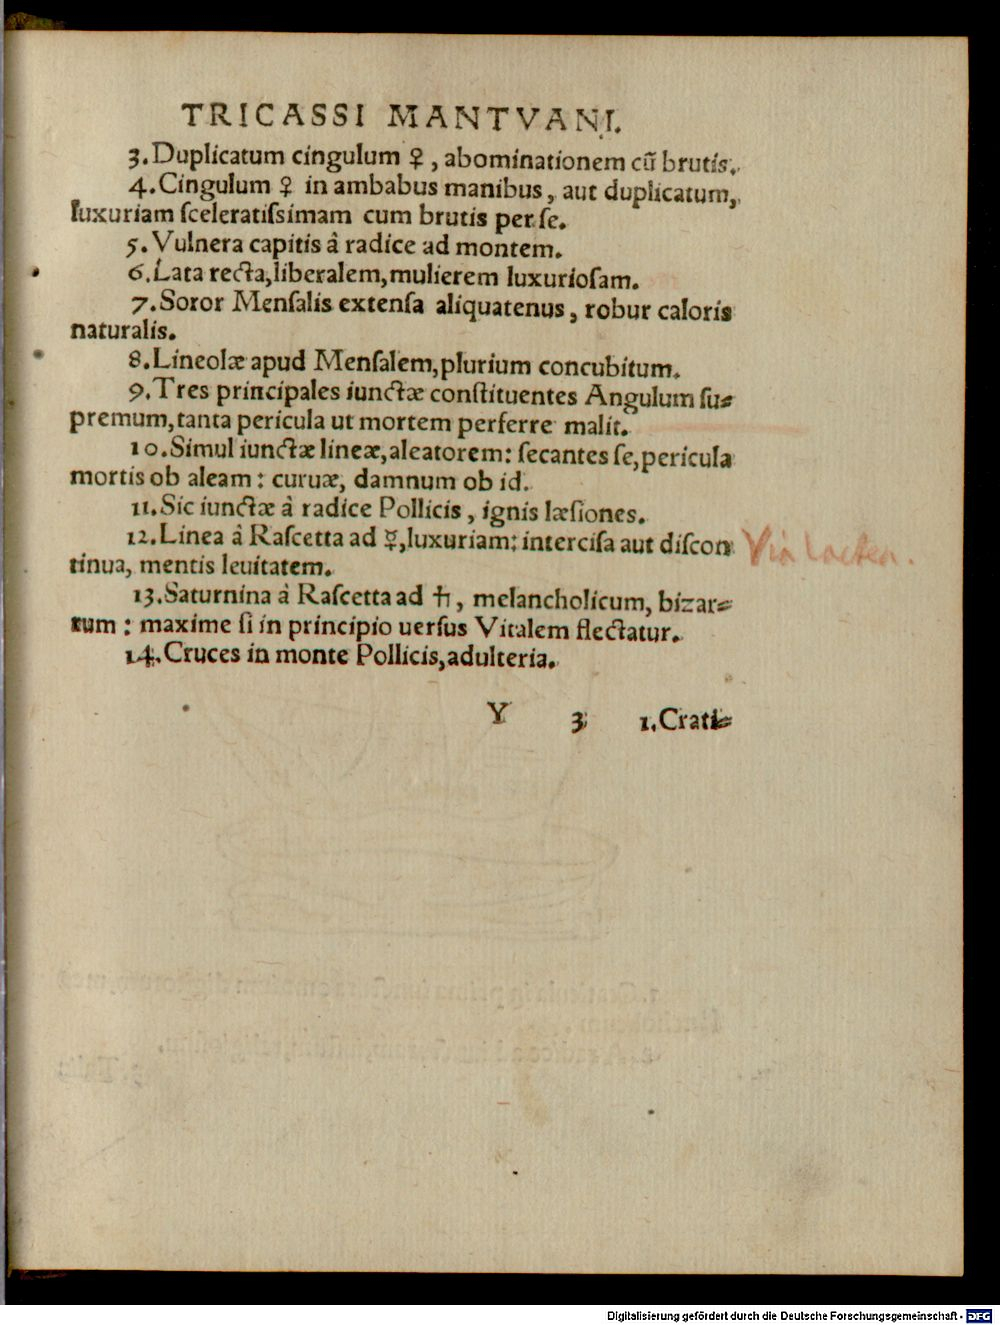 TRICASSI MANTVANI.
3. Duplicatum cingulum ♀, abominationem cū brutis.
4. Cingulum ♀ in ambabus manibus, aut duplicatum,
luxuriam ſceleratiſsimam cum brutis per ſe.
5. Vulnera capitis â radice ad montem.
6. Lata recta, liberalem, mulierem luxurioſam.
7. Soror Menſalis extenſa aliquatenus, robur caloris
naturalis.
8. Lineolæ apud Menſalem, plurium concubitum.
9. Tres principales iunctæ conſtituentes Angulum ſu⸗
premum, tanta pericula ut mortem perferre malit.
10. Simul iunctæ lineæ, aleatorem: ſecantes ſe, pericula
mortis ob aleam: curuæ, damnum ob id.
11. Sic iunctæ â radice Pollicis, ignis læſiones.
12. Linea â Raſcetta ad ☿, luxuriam: interciſa aut diſcon
tinua, mentis leuitatem.
Via lactea.
13. Saturnina â Raſcetta ad ♄, melancholicum, bizar⸗
rum: maxime ſi in principio uerſus Vitalem flectatur.
14. Cruces in monte Pollicis, adulteria.
Y 3 1. Crati⸗
Digitalisierung gefördert durch die Deutsche Forschungsgemeinschaft - DFG